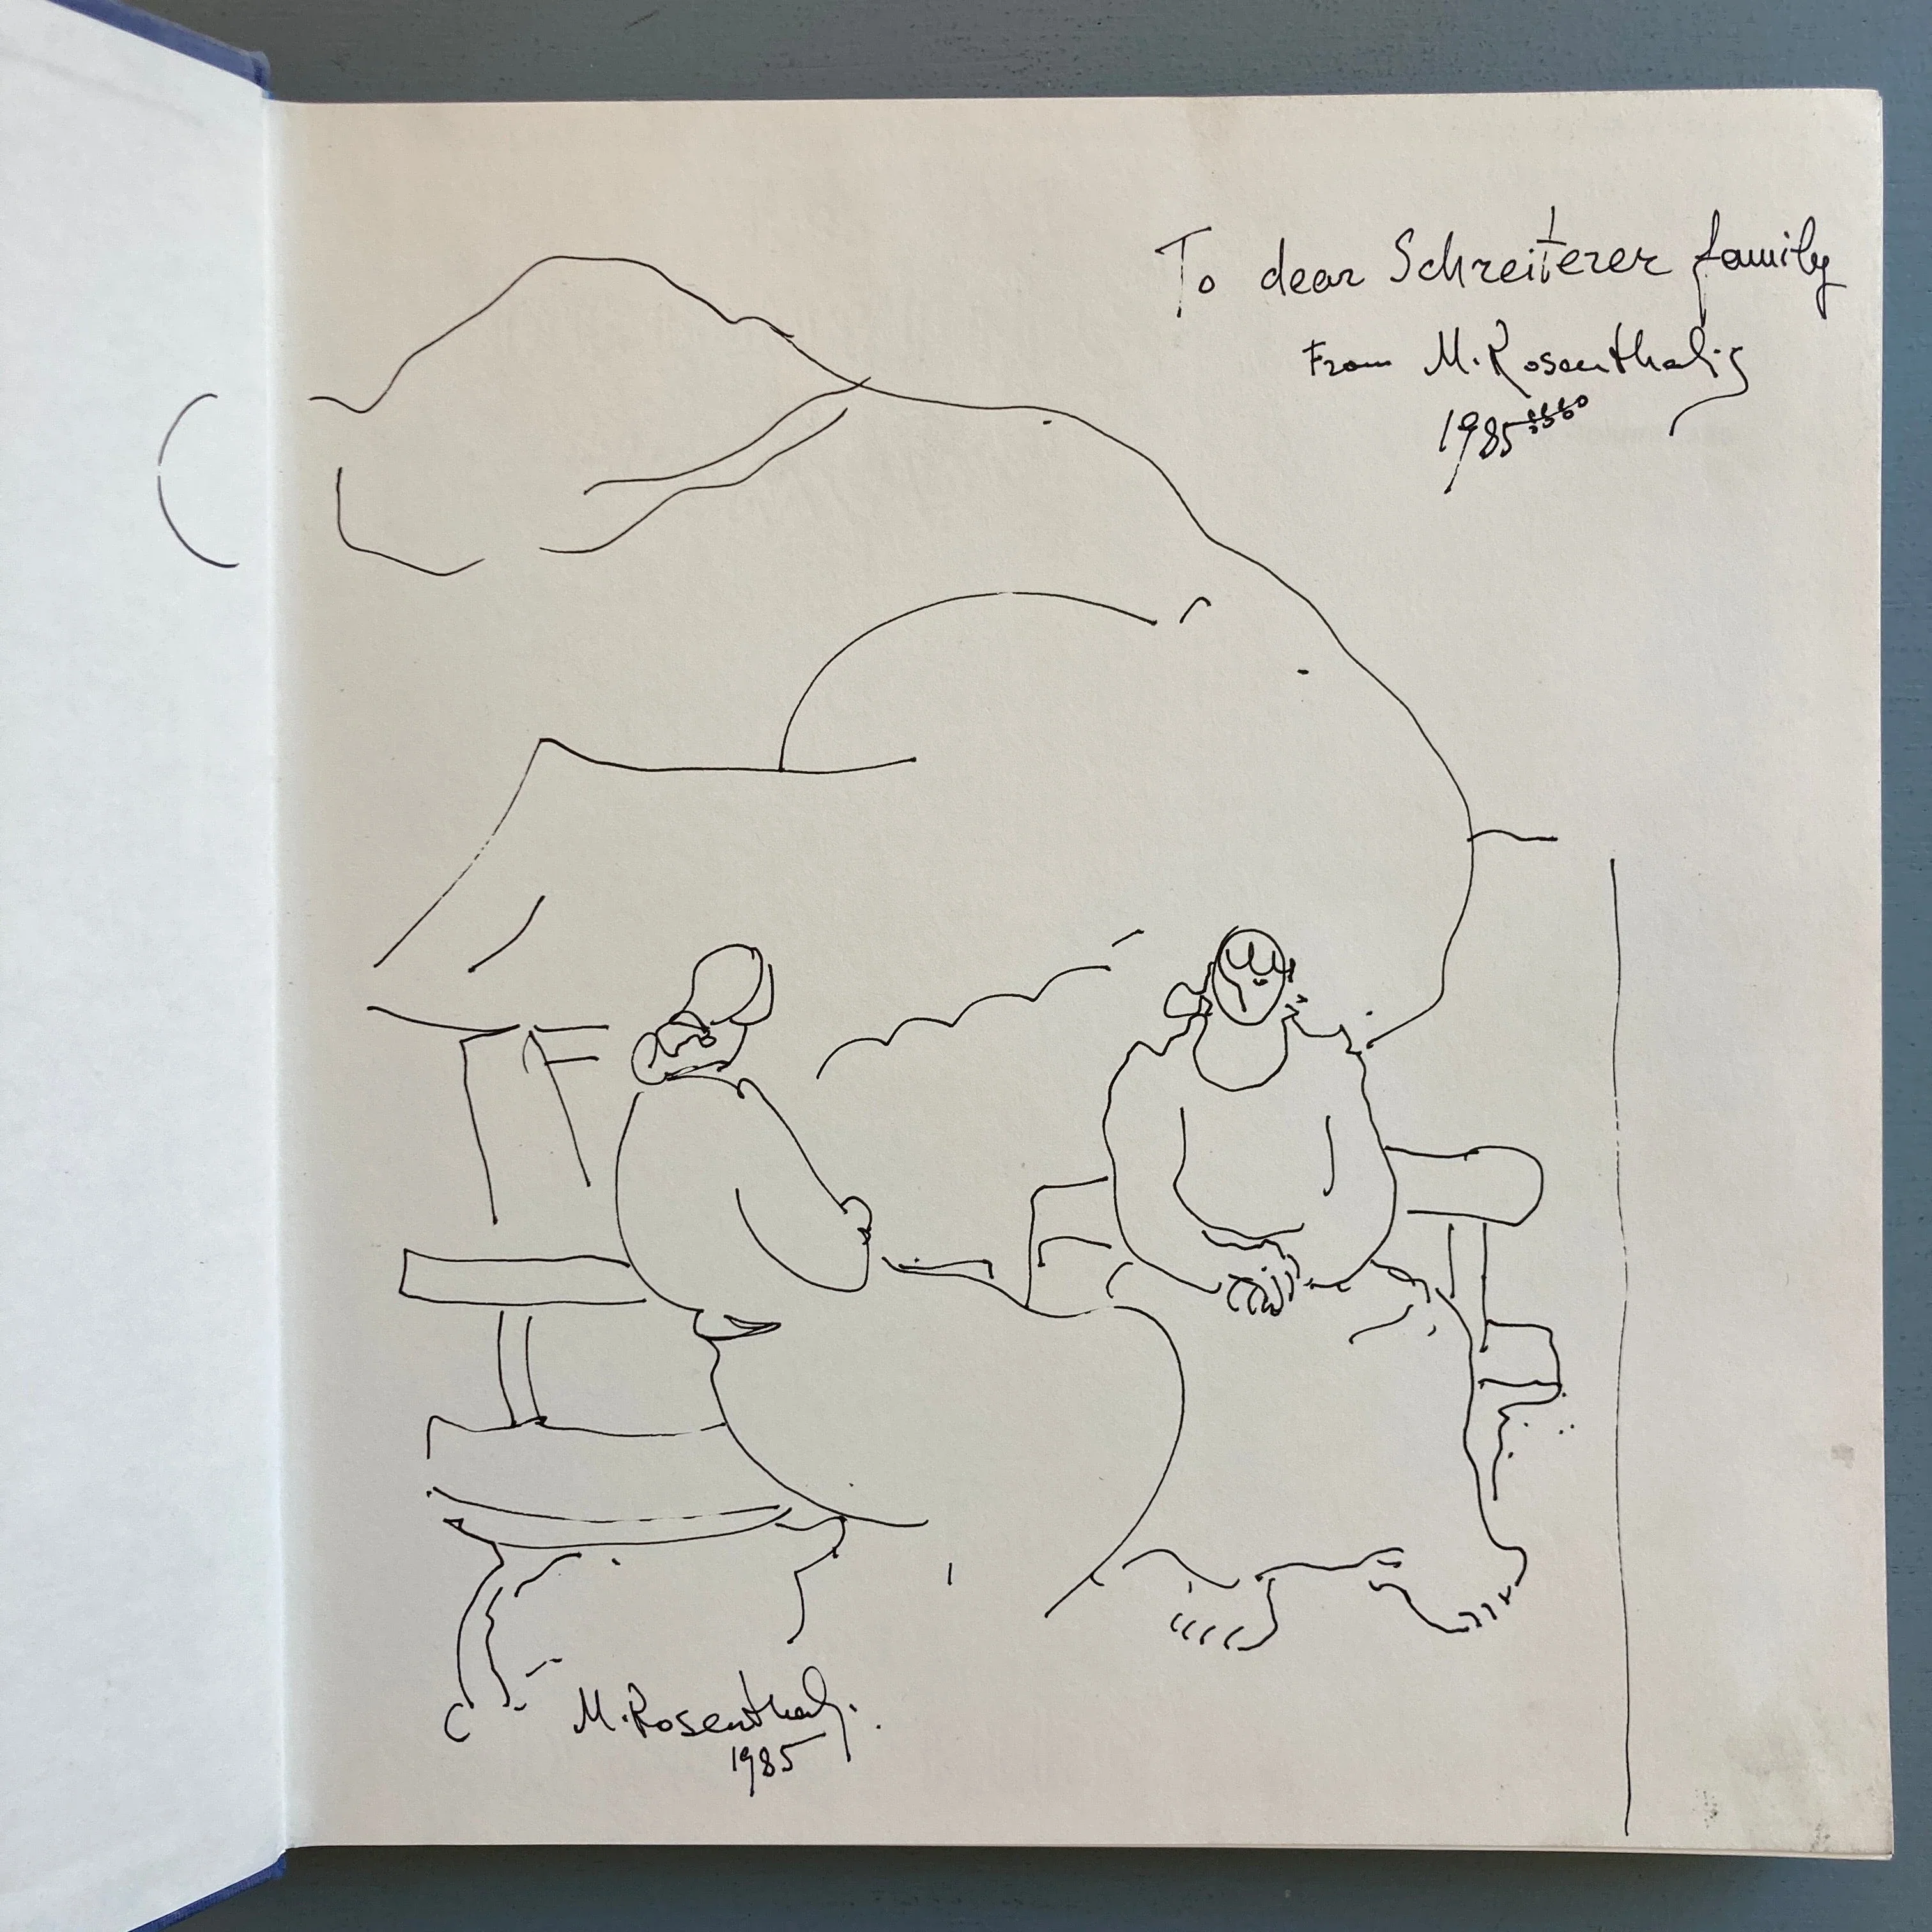 To dear Schreiterer family
From M. Rosenthalis
1985
M. Rosenthalis.
1985